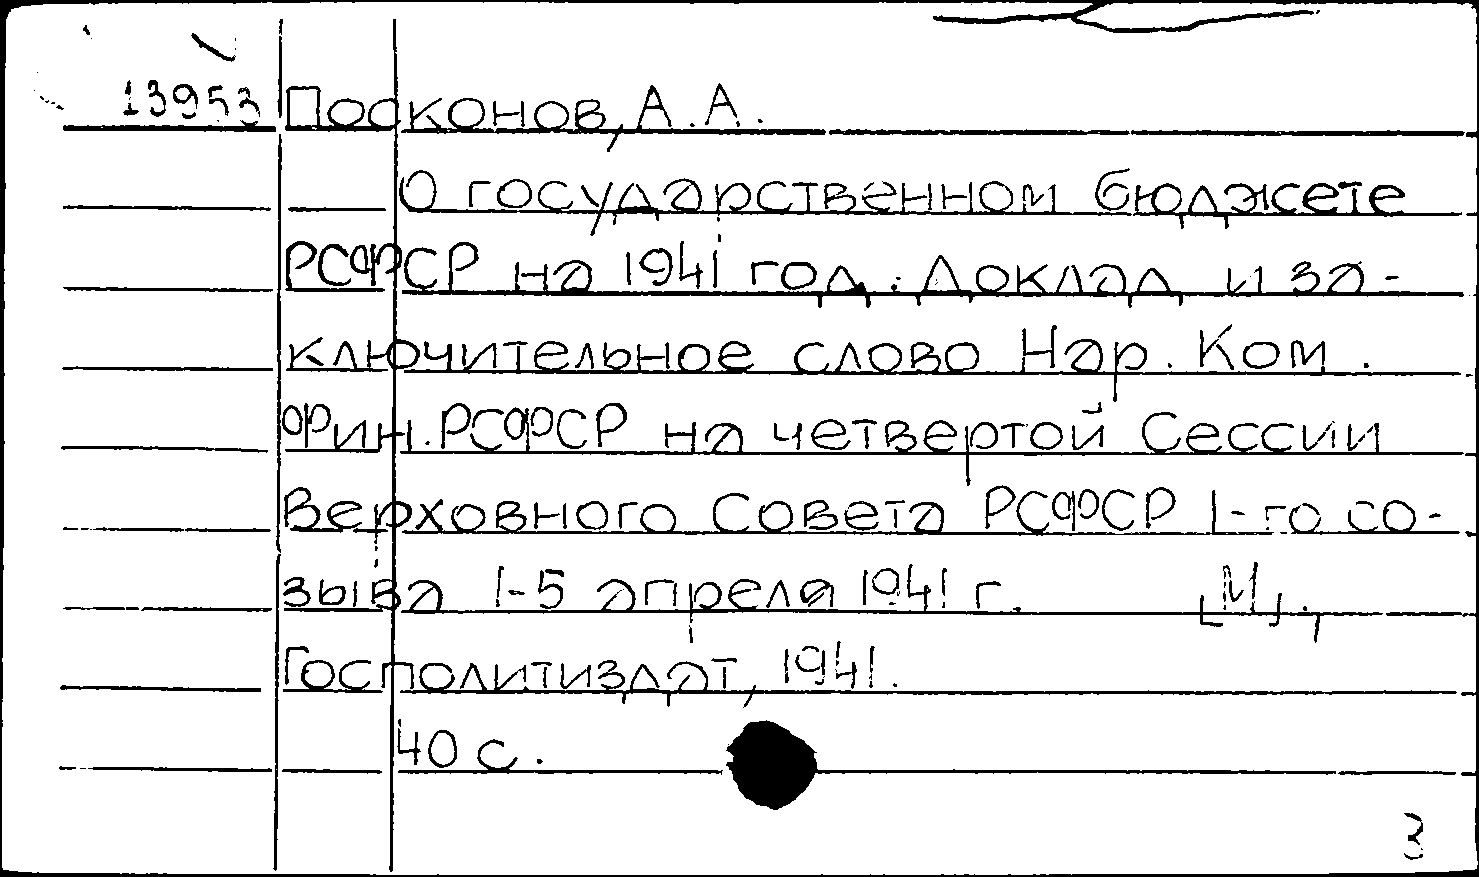 13953 Посконов, А. А.
О государственном бюджете
РСФСР на 1941 год. Доклад и за-
ключительное слово Нар. Ком.
Фин. РСФСР на четвертой Сессии
Верховного Совета РСФСР I-го со-
зыва 1-5 апреля 1941 г. [М].,
Госполитиздат, 1941.
40 с.
3